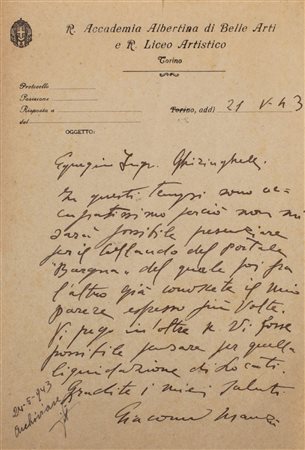 R. Accademia Albertina di Belle Arti
e R. Liceo Artistico
Torino
Protocollo
Posizione
Risposta a
del
Torino, addì 21 V-43
OGGETTO:
Egregio Ingr. Ghiringhelli,
In questi tempi sono oc-
cupatissimo perciò non mi
sarà possibile presenziare
per il collaudo del Portale
"Bargna" del quale poi fra
l'altro già conoscete il mio
parere espresso più volte.
Vi prego inoltre se Vi fosse
possibile pensare per quella
liquidazione di
Gradite i miei saluti.
Giacomo Manzù
24-5-943
Archiviare